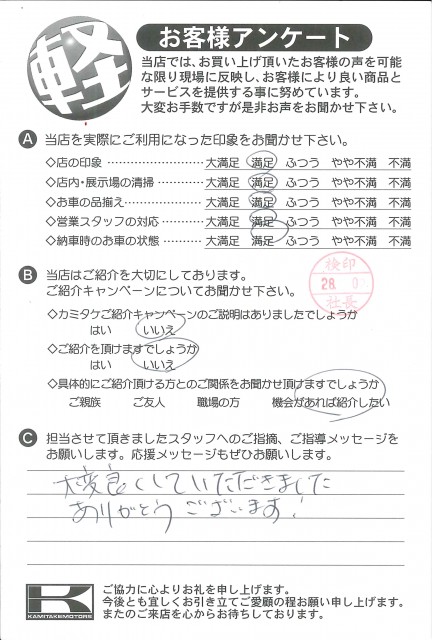 軽
お客様アンケート
当店では、お買い上げ頂いたお客様の声を可能
な限り現場に反映し、お客様により良い商品と
サービスを提供する事に努めています。
大変お手数ですが是非お声をお聞かせ下さい。
A 当店を実際にご利用になった印象をお聞かせ下さい。
◇店の印象 ……………………… 大満足 満足 ふつう やや不満 不満
◇店内・展示場の清掃 ………… 大満足 満足 ふつう やや不満 不満
◇お車の品揃え ………………… 大満足 満足 ふつう やや不満 不満
◇営業スタッフの対応 ………… 大満足 満足 ふつう やや不満 不満
◇納車時のお車の状態 ………… 大満足 満足 ふつう やや不満 不満
検印
28.
社長
B 当店はご紹介を大切にしてあります。
ご紹介キャンペーンについてお聞かせ下さい。
◇カミタケご紹介キャンペーンのご説明はありましたでしょうか
はい いいえ
◇ご紹介を頂けますでしょうか
はい いいえ
◇具体的にご紹介頂ける方とのご関係をお聞かせ頂けますでしょうか
ご親族 ご友人 職場の方 機会があれば紹介したい
C 担当させて頂きましたスタッフへのご指摘、ご指導メッセージを
お願いします。応援メッセージもぜひお願いします。
大変良くしていただきました
ありがとうございます!
K
KAMITAKEMOTORS
ご協力に心よりお礼を申し上げます。
今後とも宜しくお引き立てご愛顧の程お願い申し上げます。
またのご来店を心からお待ちしております。